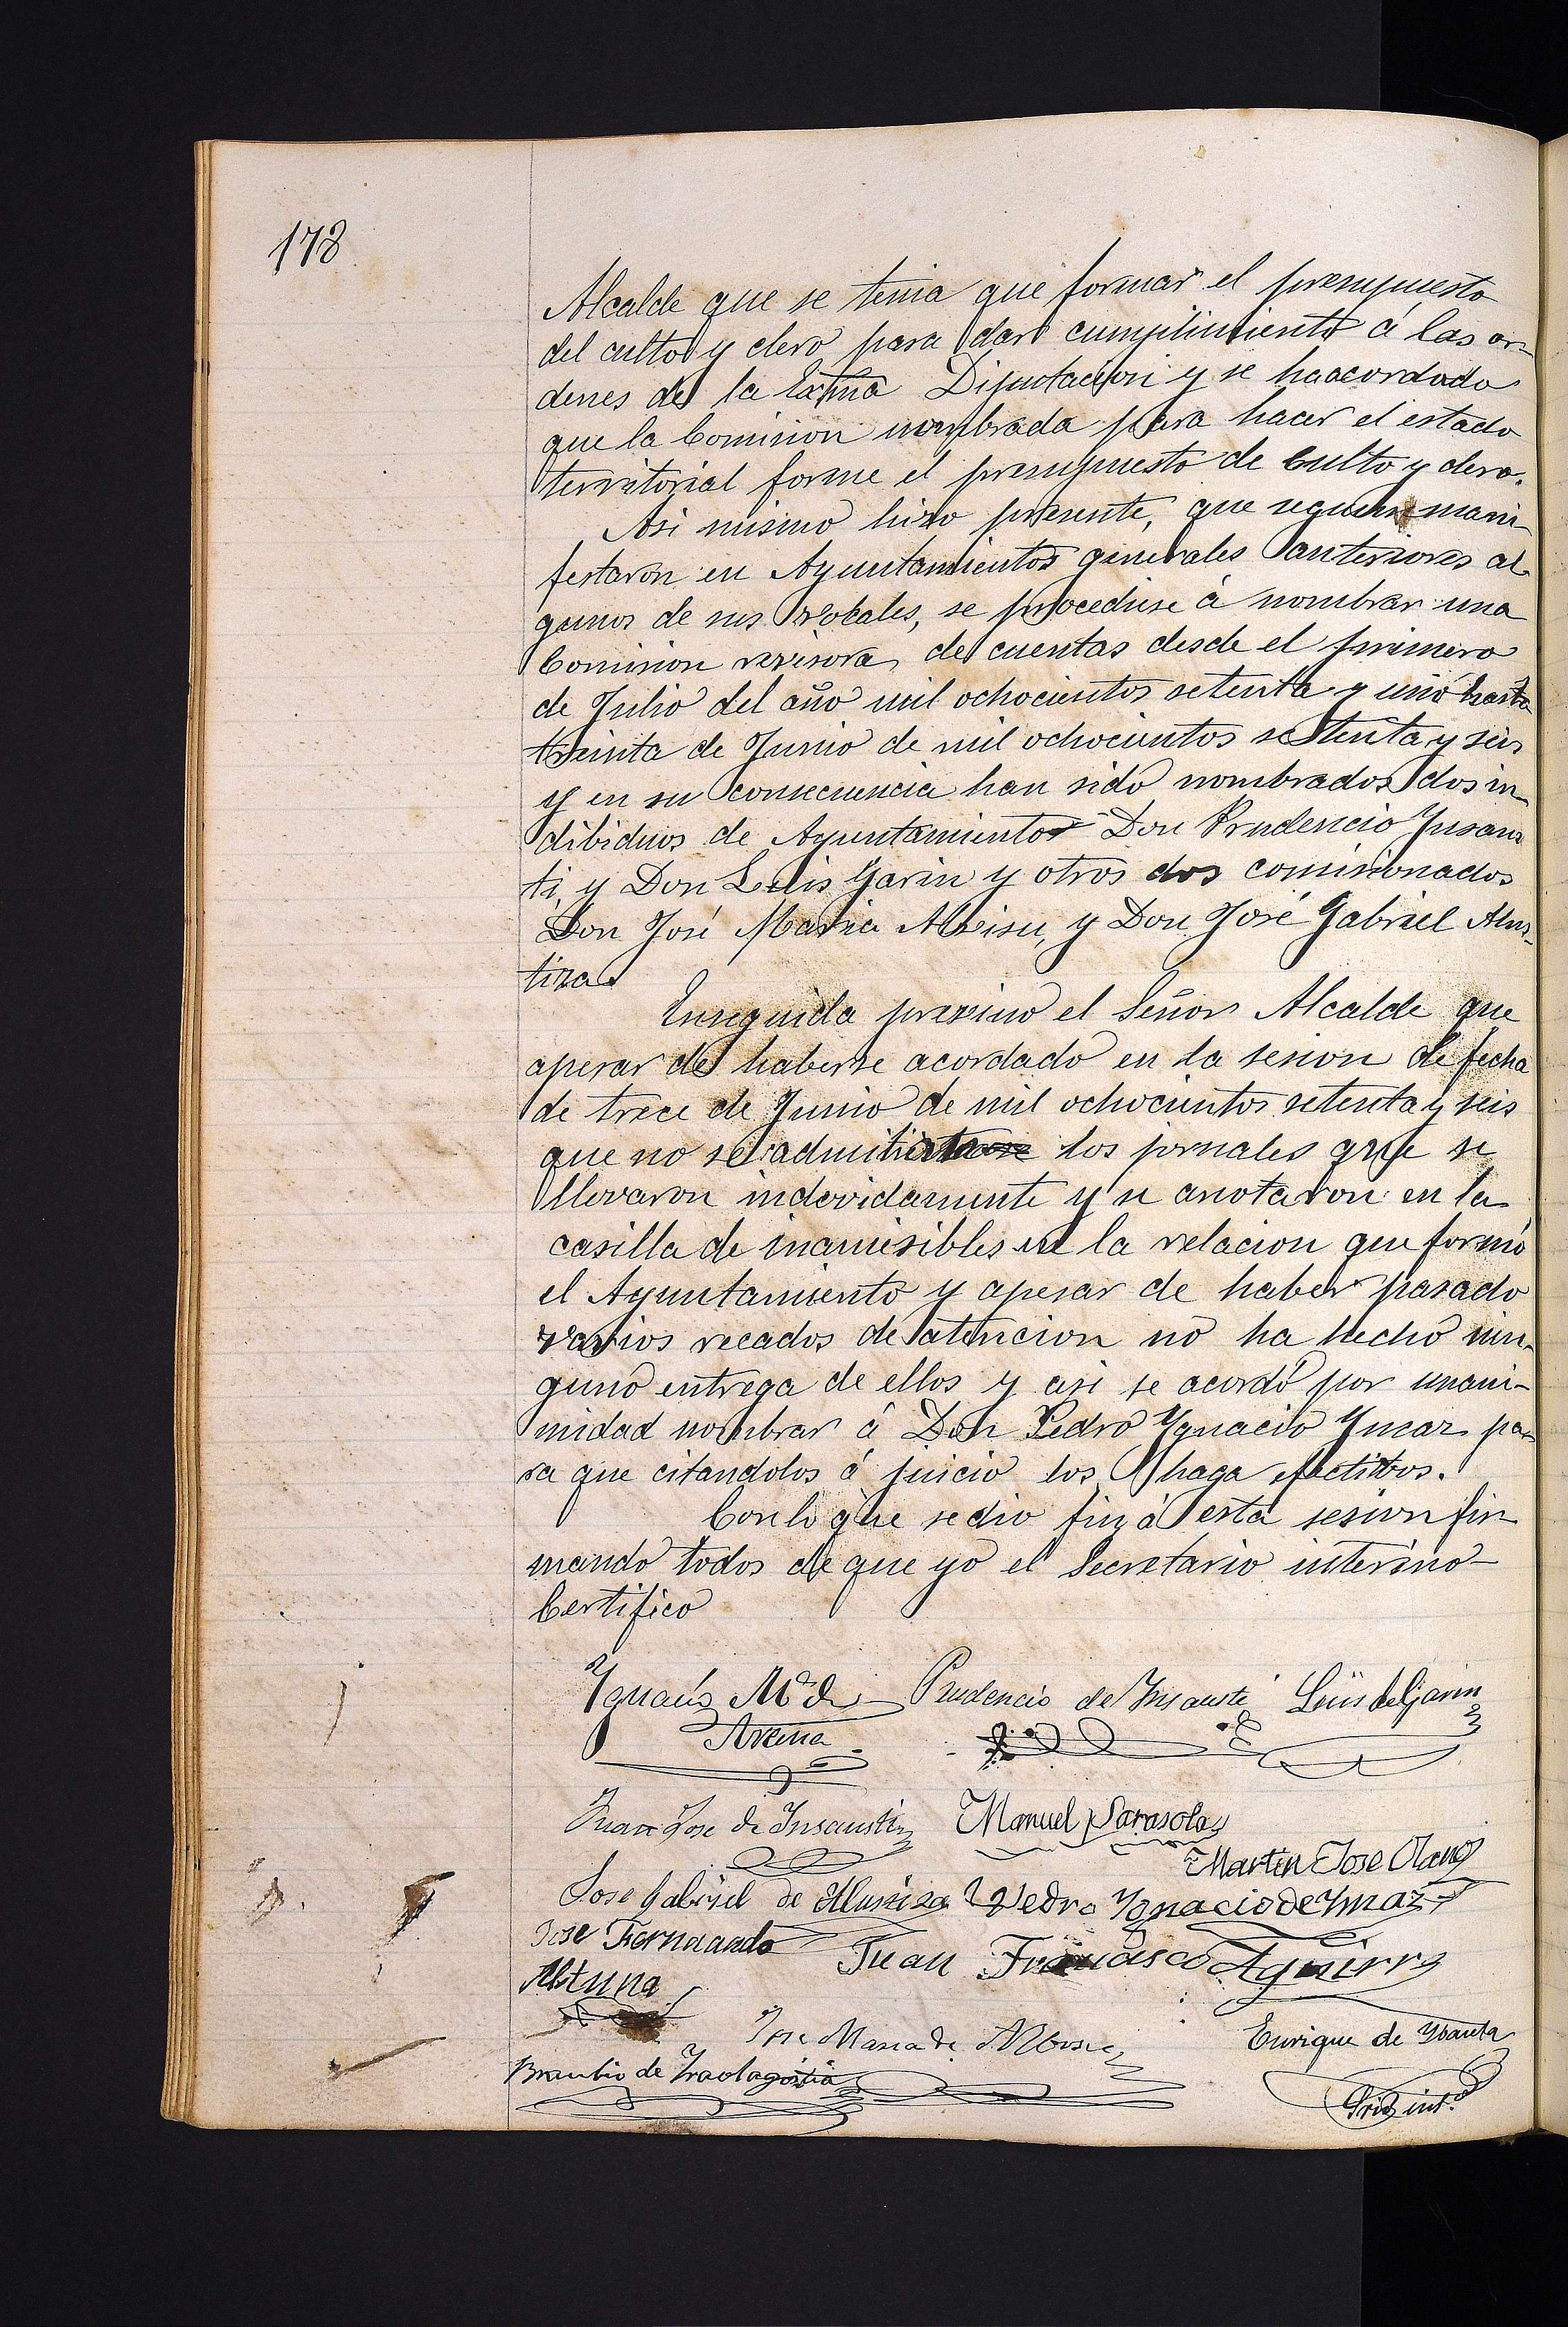 178
Alcalde que se tenia que formar el presupuesto
del culto y clero para dar cumplimiento á las or-
denes de la Exma Diputacion y se ha acordado
que la Comision nombrada para hacer el estado
territorial forme el presupuesto de Culto y clero.
Asi mismo hizo presente, que segun mani-
festaron en Ayuntamientos generales anteriores al
gunos de sus vocales, se procediese á nombrar una
Comision revisora de cuentas desde el primero
de Julio del año mil ochocientos setenta y uno hasta
treinta de Junio de mil ochocientos setenta y seis
y en su consecuencia han sido nombrados dos in-
dibiduos de Ayuntamiento Don Prudencio Ynsaus
ti, y Don Luis Garin y otros dos comisionados
Don José Maria Albisu, y Don José Gabriel Alus-
tiza.
Enseguida previno el Señor Alcalde que
apesar de haberse acordado en la sesion de fecha
de trece de Junio de mil ochocientos setenta y seis
que no se los jornales que se
llevaron indevidamente y se anotaron en la
casilla de inamisibles en la relacion que formó
el Ayuntamiento y apesar de haber pasado
varios recados de atencion no ha hecho nin-
guno entrega de ellos y asi se acordó por unani-
midad nombrar á Don Pedro Ygnacio Ymaz pa-
ra que citandolos á juicio los haga efectivos.
Con lo que se dio fin á esta sesion fir-
mando todos de que yo el Secretario interino
Certifico
Ygnacio Ma de Prudencio de Insausti Luis de Garin
Juan Jose de Insausti Manuel Sarasola
Martin Jose Olano
Jose Gabriel de Alustiza Pedro Ygnacio de Ymaz
Jose Fernando Juan Francisco Aguirre
Altuna
Jose Maria de Albisu Enrique de
Braulio de
Srio int.o